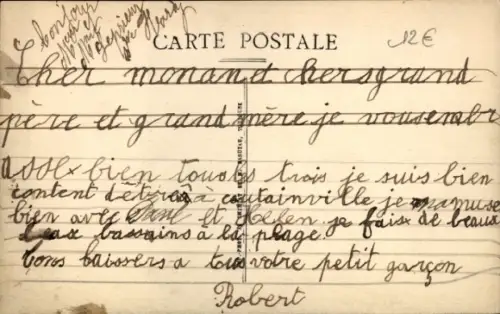 bonjour
CARTE POSTALE
12€
Cher monan et chers grand
père et grand mère je vous embr
asse bien tous les trois je suis bien
content d'être à coutainville je m'amuse
bien avec et Helen je fais de beaux
bassains à la plage.
bons baissers a tous votre petit garçon
Robert